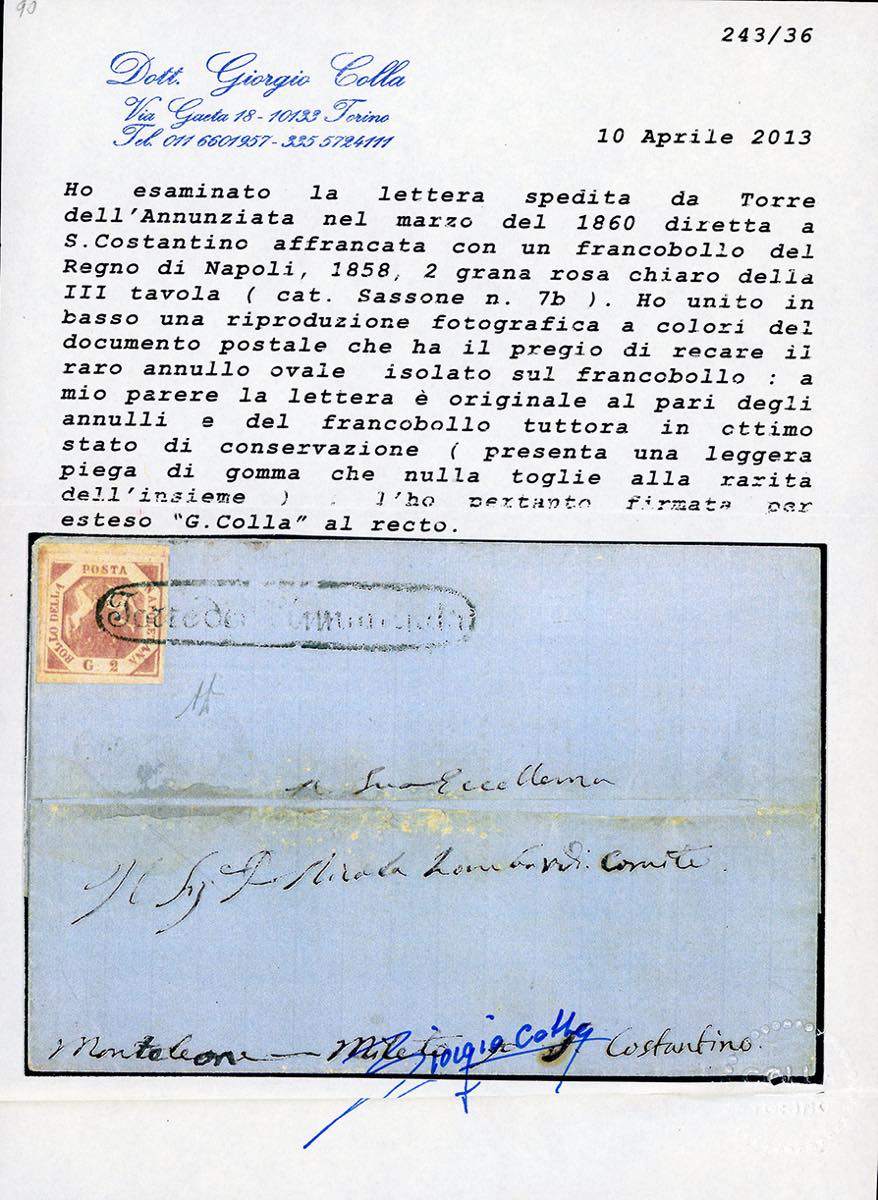 90
243/36
Dott. Giorgio Colla
Via Gaeta 18 - 10133 Torino
Tel. 011 6601957 - 335 5724111
10 Aprile 2013
Ho esaminato la lettera spedita da Torre
dell'Annunziata nel marzo del 1860 diretta a
S.Costantino affrancata con un francobollo del
Regno di Napoli, 1858, 2 grana rosa chiaro della
III tavola ( cat. Sassone n. 7b ). Ho unito in
basso una riproduzione fotografica a colori del
documento postale che ha il pregio di recare il
raro annullo ovale isolato sul francobollo : a
mio parere la lettera è originale al pari degli
annulli e del francobollo tuttora in ottimo
stato di conservazione ( presenta una leggera
piega di gomma che nulla toglie alla rarità
dell'insieme ) . l'ho pertanto firmata per
esteso "G.Colla" al recto.
BOLLO DELLA POSTA NAPOLETANA
G. 2
Torre del Annunziata
a Sua Eccellenza
Il Sig. D. Nicola Lombardi Comite
Monteleone — Mileto Costantino.
Giorgio Colla